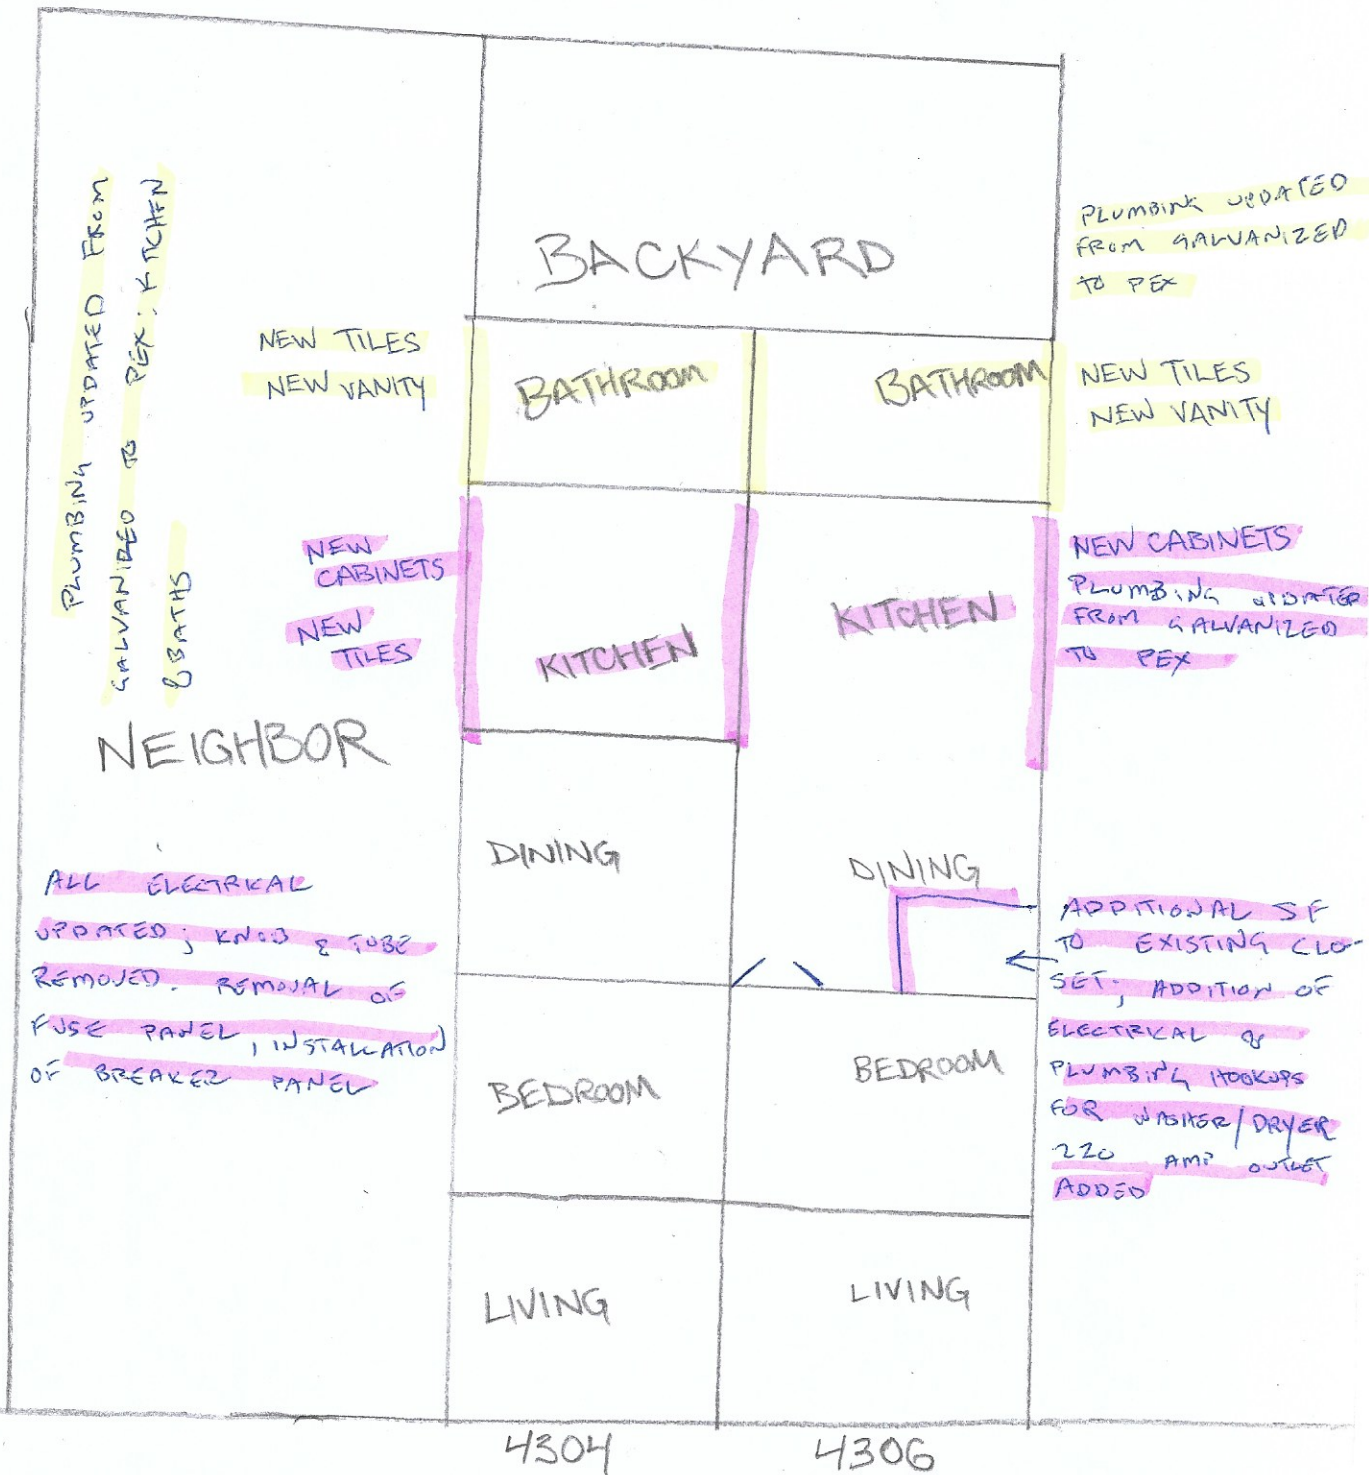 BACKYARD
PLUMBING UPDATED FROM
GALVANIZED TO PEX; KITCHEN
& BATHS
PLUMBING UPDATED
FROM GALVANIZED
TO PEX
NEW TILES
NEW VANITY
BATHROOM
BATHROOM
NEW TILES
NEW VANITY
NEW
CABINETS
NEW
TILES
KITCHEN
KITCHEN
NEW CABINETS
PLUMBING UPDATED
FROM GALVANIZED
TO PEX
NEIGHBOR
DINING
DINING
ALL ELECTRICAL
UPDATED; KNOB & TUBE
REMOVED. REMOVAL OF
FUSE PANEL, INSTALLATION
OF BREAKER PANEL
ADDITIONAL SF
TO EXISTING CLO-
SET; ADDITION OF
ELECTRICAL &
PLUMBING HOOKUPS
FOR WASHER/DRYER
220 AMP OUTLET
ADDED
BEDROOM
BEDROOM
LIVING
LIVING
4304
4306